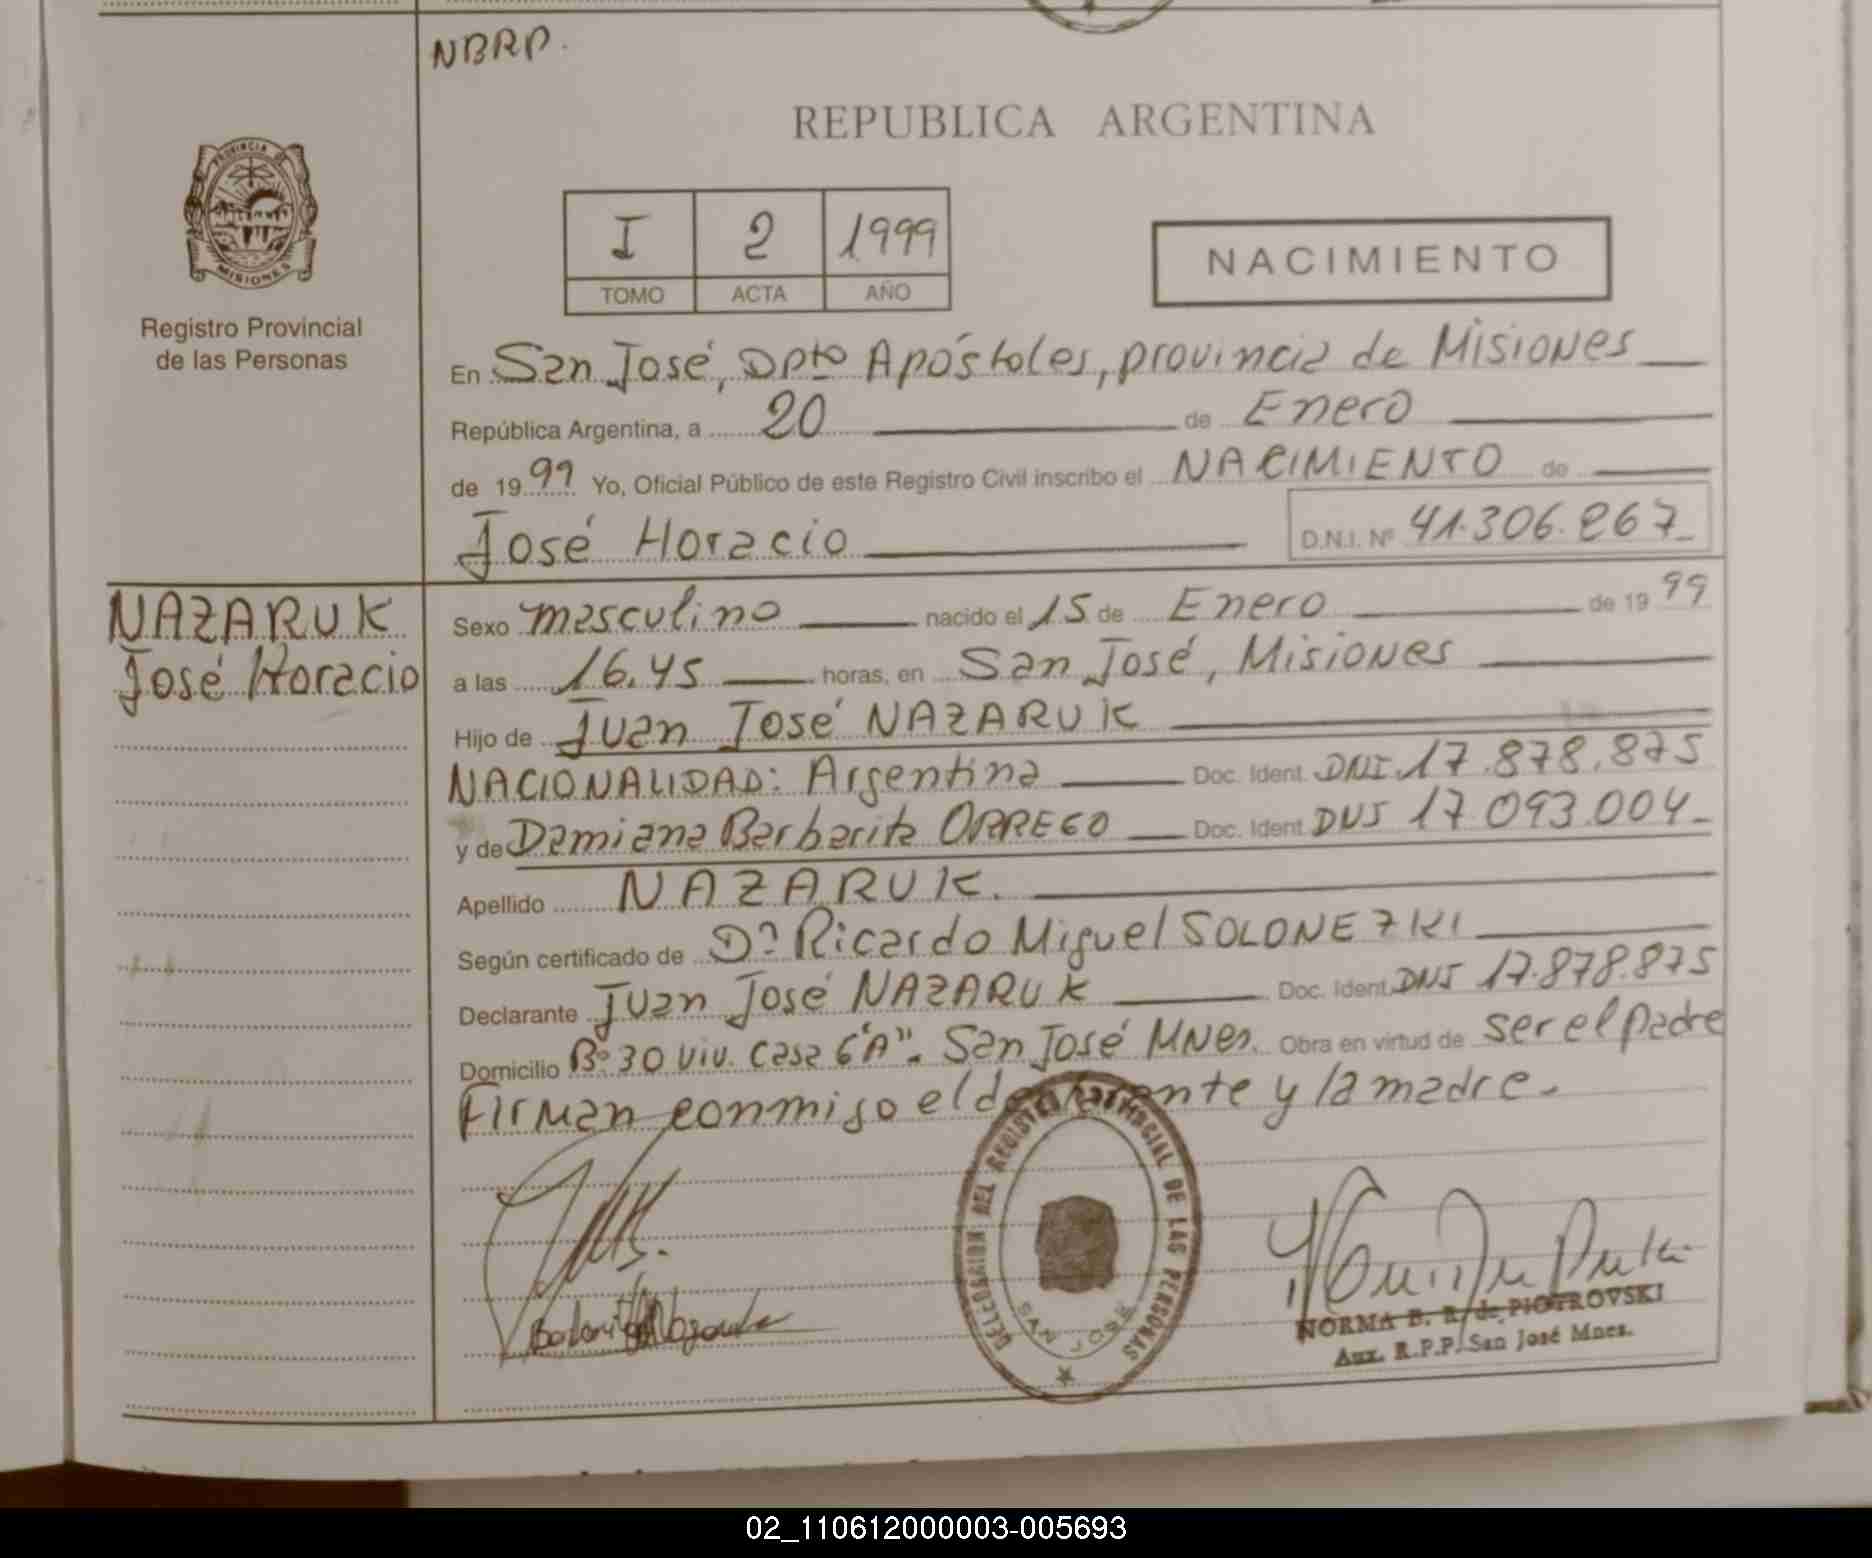 NBRP.
REPUBLICA ARGENTINA
PROVINCIA DE
MISIONES
Registro Provincial
de las Personas
I 2 1999
TOMO ACTA AÑO
NACIMIENTO
En San José, Dpto Apóstoles, provincia de Misiones
República Argentina, a 20 de Enero
de 1999 Yo, Oficial Público de este Registro Civil inscribo el NACIMIENTO de
José Horacio D.N.I. Nº 41.306.267
NAZARUK
José Horacio
Sexo masculino nacido el 15 de Enero de 1999
a las 16.45 horas, en San José, Misiones
Hijo de Juan José NAZARUK
NACIONALIDAD: Argentina Doc. Ident. DNI 17.878.875
y de Damiana Barbarita ORREGO Doc. Ident. DNI 17.093.004
Apellido NAZARUK.
Según certificado de Dº Ricardo Miguel SOLONEZKI
Declarante Juan José NAZARUK Doc. Ident. DNI 17.878.875
Domicilio Bº 30 viv. Casa 6 "A". San José Mnes. Obra en virtud de ser el padre
Firman conmigo el declarante y la madre.
DELEGACION DEL REGISTRO PROVINCIAL DE LAS PERSONAS
SAN JOSE
NORMA B. R. de PIOTROVSKI
Aux. R.P.P. San José Mnes.
02_110612000003-005693